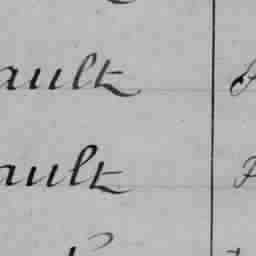 ault
ault